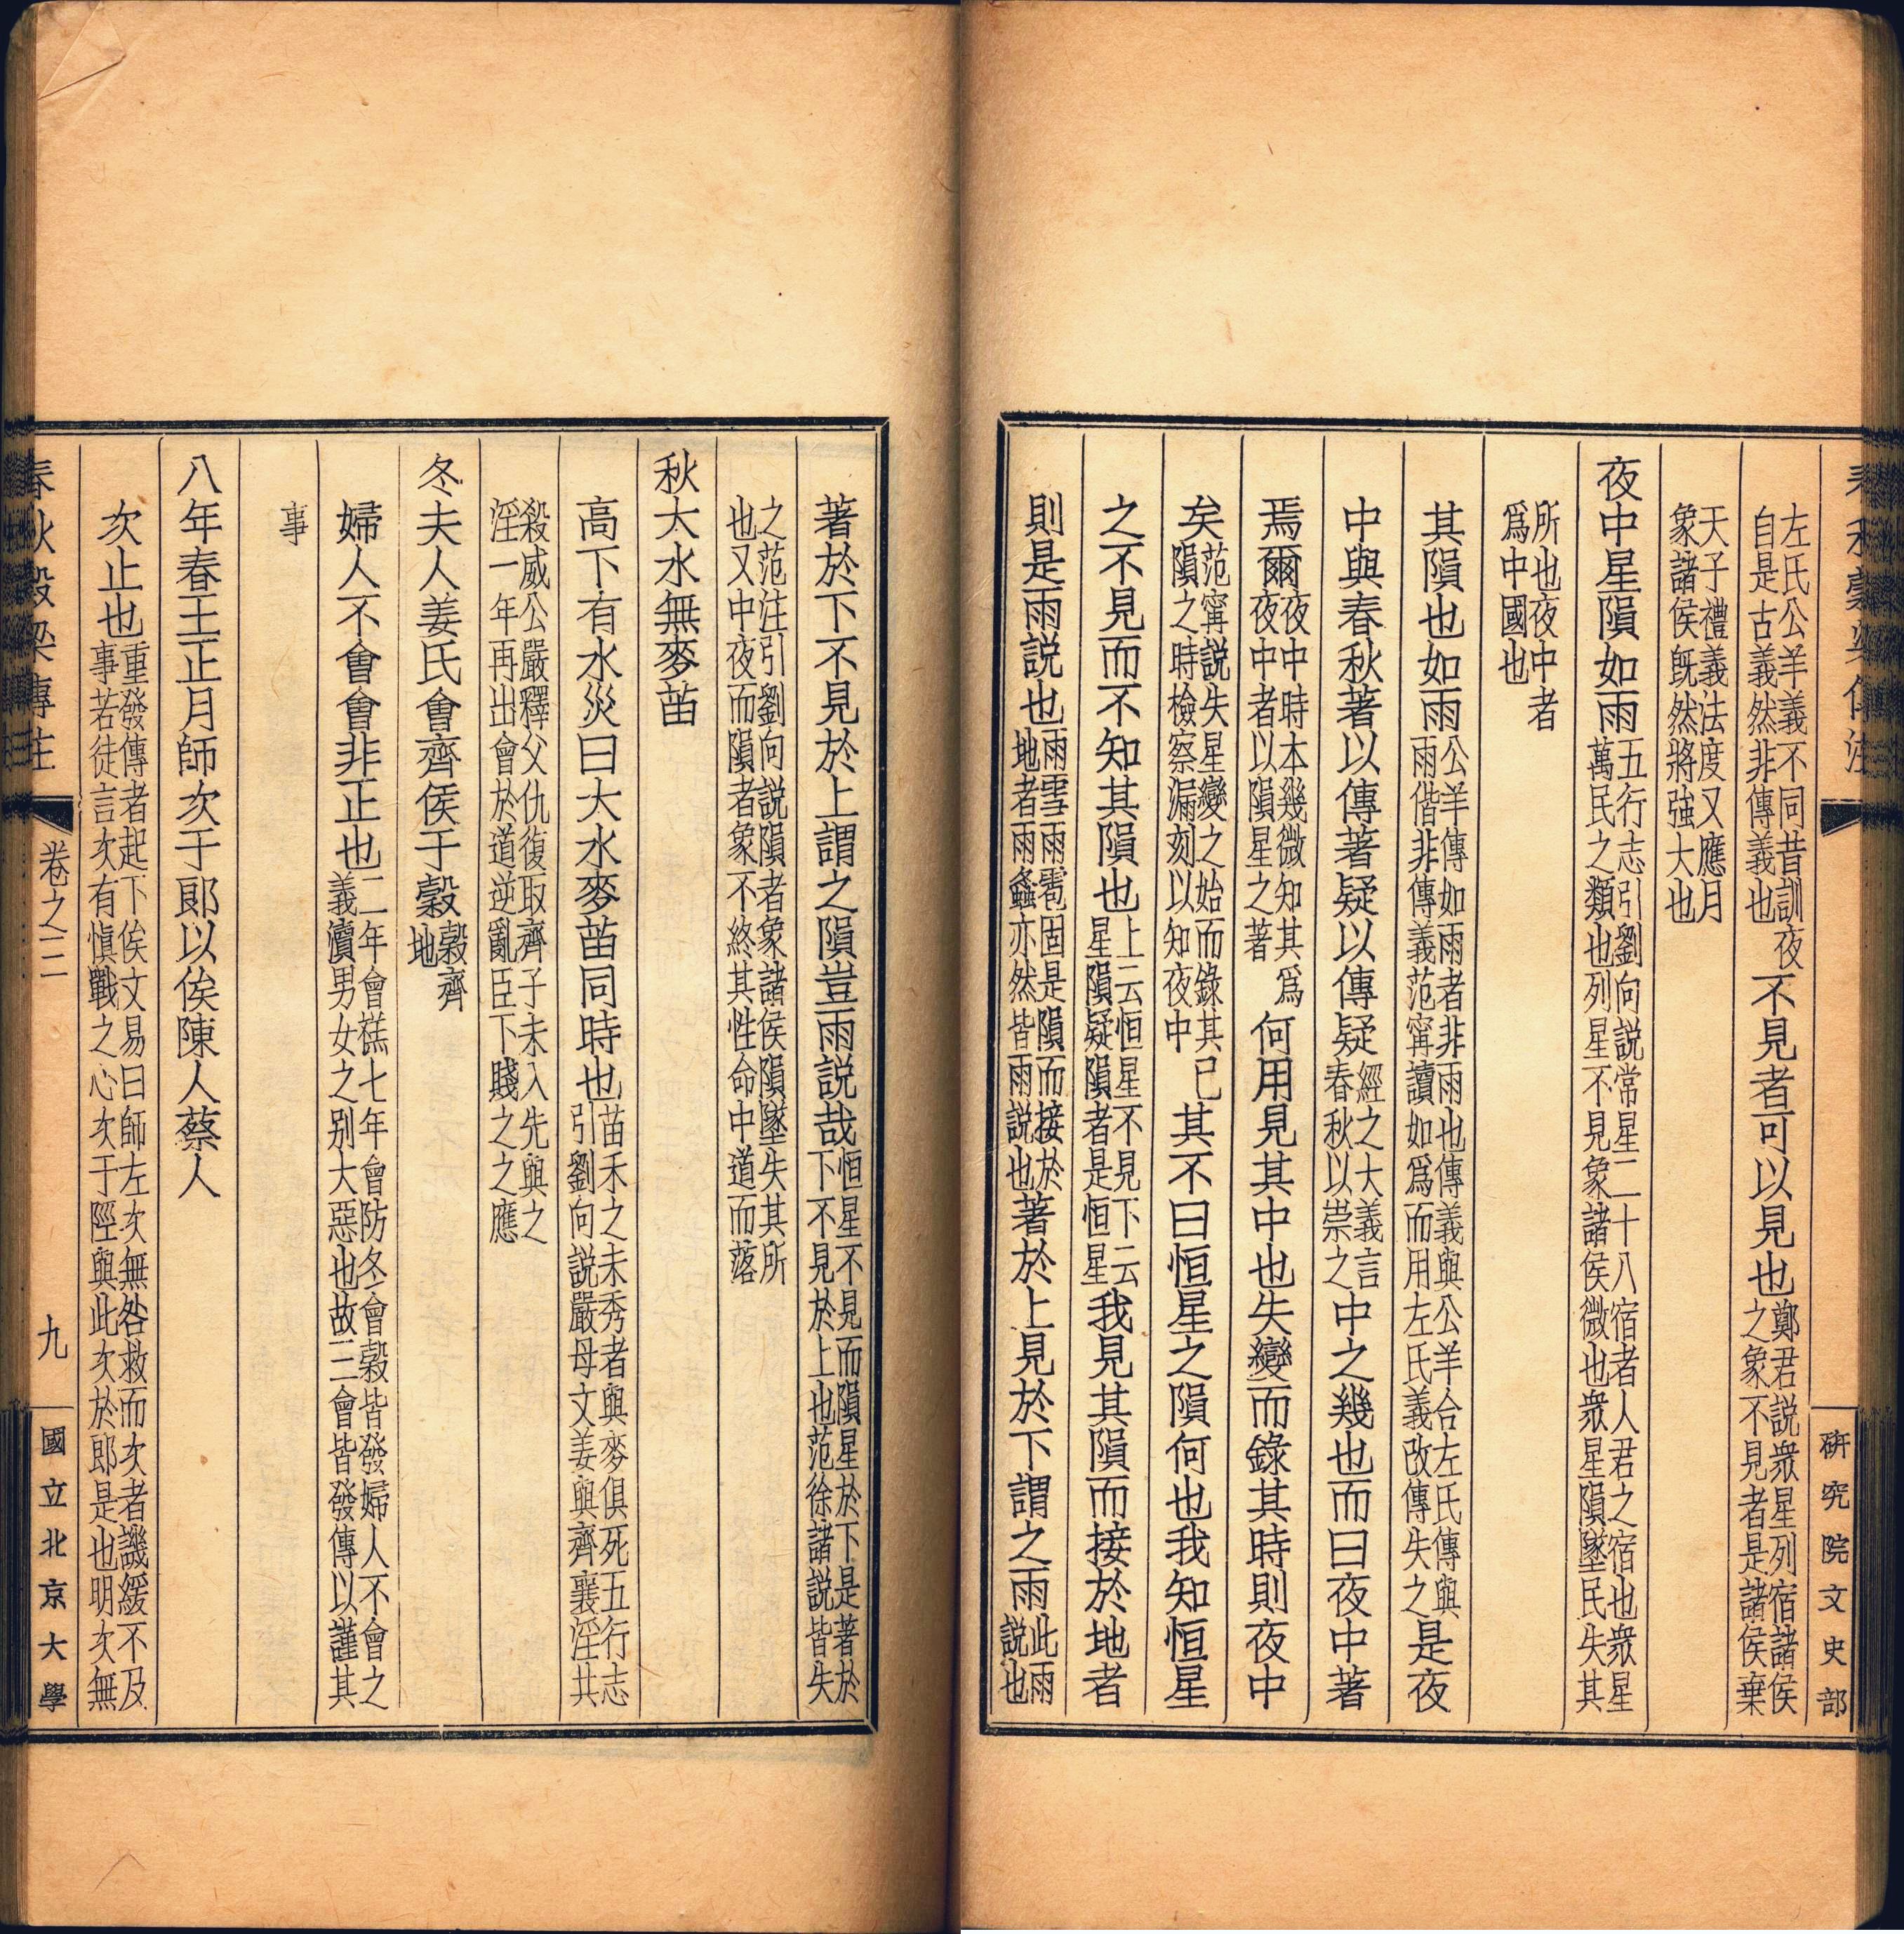 春秋穀梁傳注
研究院文史部
左氏公羊義不同昔訓夜自是古義然非傳義也不見者可以見也鄭君説衆星列宿諸侯之象不見者是諸侯棄
天子禮義法度又應月象諸侯旣然將強大也
夜中星隕如雨五行志引劉向説常星二十八宿者人君之宿也衆星萬民之類也列星不見象諸侯微也衆星隕墜民失其
所也夜中者爲中國也
其隕也如雨公羊傳如雨者非雨也傳義與公羊合左氏傳與雨偕非傳義范甯讀如爲而用左氏義改傳失之是夜
中與春秋著以傳著疑以傳疑經之大義言春秋以崇之中之幾也而曰夜中著
焉爾夜中時本幾微知其爲夜中者以隕星之著何用見其中也失變而錄其時則夜中
矣范甯説失星變之始而錄其已隕之時檢察漏刻以知夜中其不曰恒星之隕何也我知恒星
之不見而不知其隕也上云恒星不見下云星隕疑隕者是恒星我見其隕而接於地者
則是雨説也雨雪雨雹固是隕而接於地者雨螽亦然皆雨説也著於上見於下謂之雨此雨説也
著於下不見於上謂之隕豈雨説哉恒星不見而隕星於下是著於下不見於上也范徐諸説皆失
之范注引劉向説隕者象諸侯隕墜失其所也又中夜而隕者象不終其性命中道而落
秋大水無麥苗
高下有水災曰大水麥苗同時也苗禾之未秀者與麥俱死五行志引劉向説嚴母文姜與齊襄淫共
殺威公嚴釋父仇復取齊子未入先與之淫一年再出會於道逆亂臣下賤之之應
冬夫人姜氏會齊侯于穀穀齊地
婦人不會會非正也二年會禚七年會防冬會穀皆發婦人不會之義瀆男女之别大惡也故三會皆發傳以謹其
事
八年春王正月師次于郎以俟陳人蔡人
次止也重發傳者起下俟文易曰師左次無咎救而次者譏緩不及事若徒言次有愼戰之心次于陘與此次於郎是也明次無
春秋穀梁傳注
卷之二
九
國立北京大學